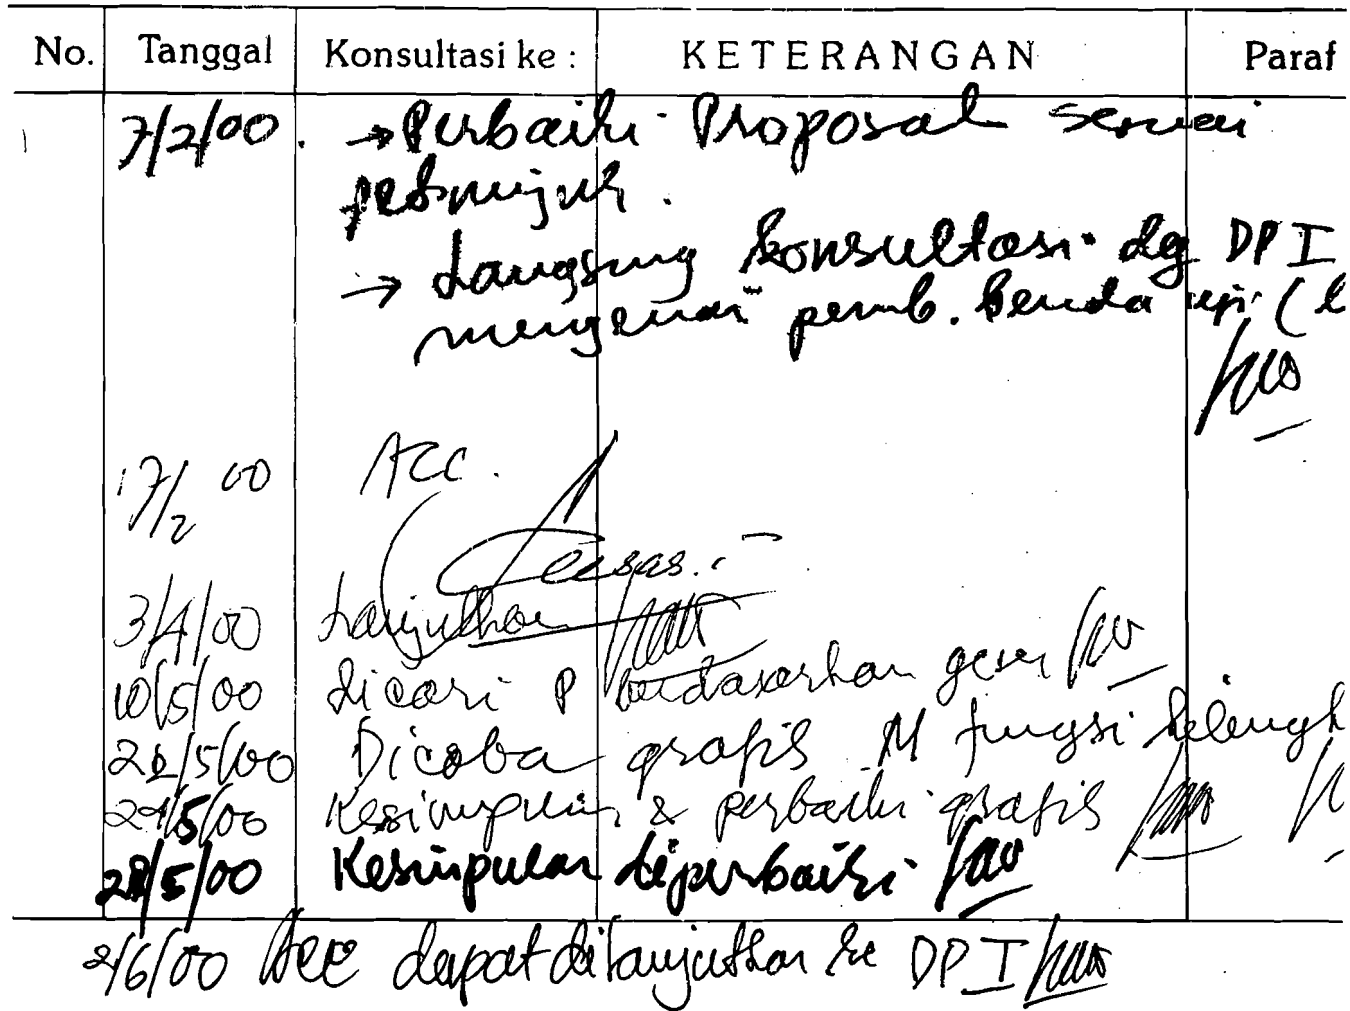 No. Tanggal Konsultasi ke : KETERANGAN Paraf
7/2/00. → Perbaiki Proposal sesuai
petunjuk.
→ Langsung konsultasi dg DP I
mengenai pemb. benda uji (
17/2 00 Acc.
3/4/00 Lanjutkan
10/5/00 dicari P berdasarkan geser
22/5/00 Dicoba grafis M fungsi
/5/00 Kesimpulan & perbaiki grafis
/5/00 Kesimpulan diperbaiki
2/6/00 Acc dapat dilanjutkan ke DP I